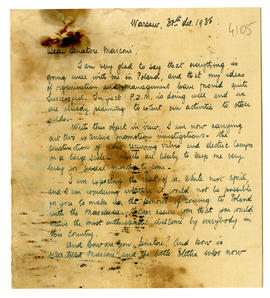 Warsaw, 30th Dec. 1936
4105
Dear Senatore Marconi,
I am very glad to say that everything is
going well with me in Poland, and that my ideas
of organisation and management have proved quite
successful. In fact P.Z.M. is doing well and we
are already planning to extend our activities to other
fields.
With this object in view, I am now carrying
out two extensive investigations - the
construction of radio receiving valves and electric lamps
on a large scale. are likely to keep me very
busy for several months to come.
I am expecting out of in while next april,
and I am wondering whether it would not be possible
for you to make us the honour of coming to Poland
with the Marchesa. I can assure you that you would
receive the most enthusiastic welcome by everybody in
this Country.
And how are you, Senatore, and how is
Marchesa Marconi and the little Elettra who now